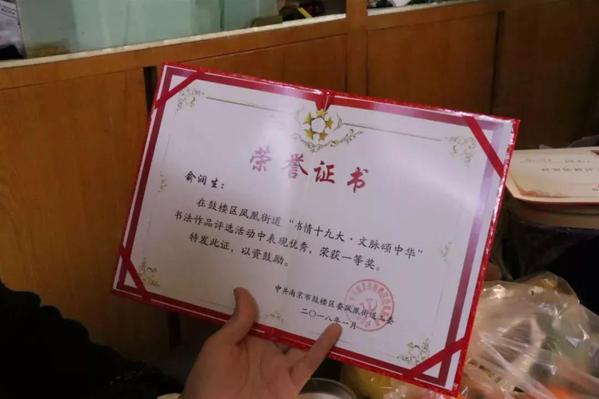 荣誉证书
俞润生：
在鼓楼区凤凰街道“书情十九大·文脉颂中华”
书法作品评选活动中表现优秀，荣获一等奖。
特发此证，以资鼓励。
中共南京市鼓楼区委凤凰街道工委
二〇一八年一月